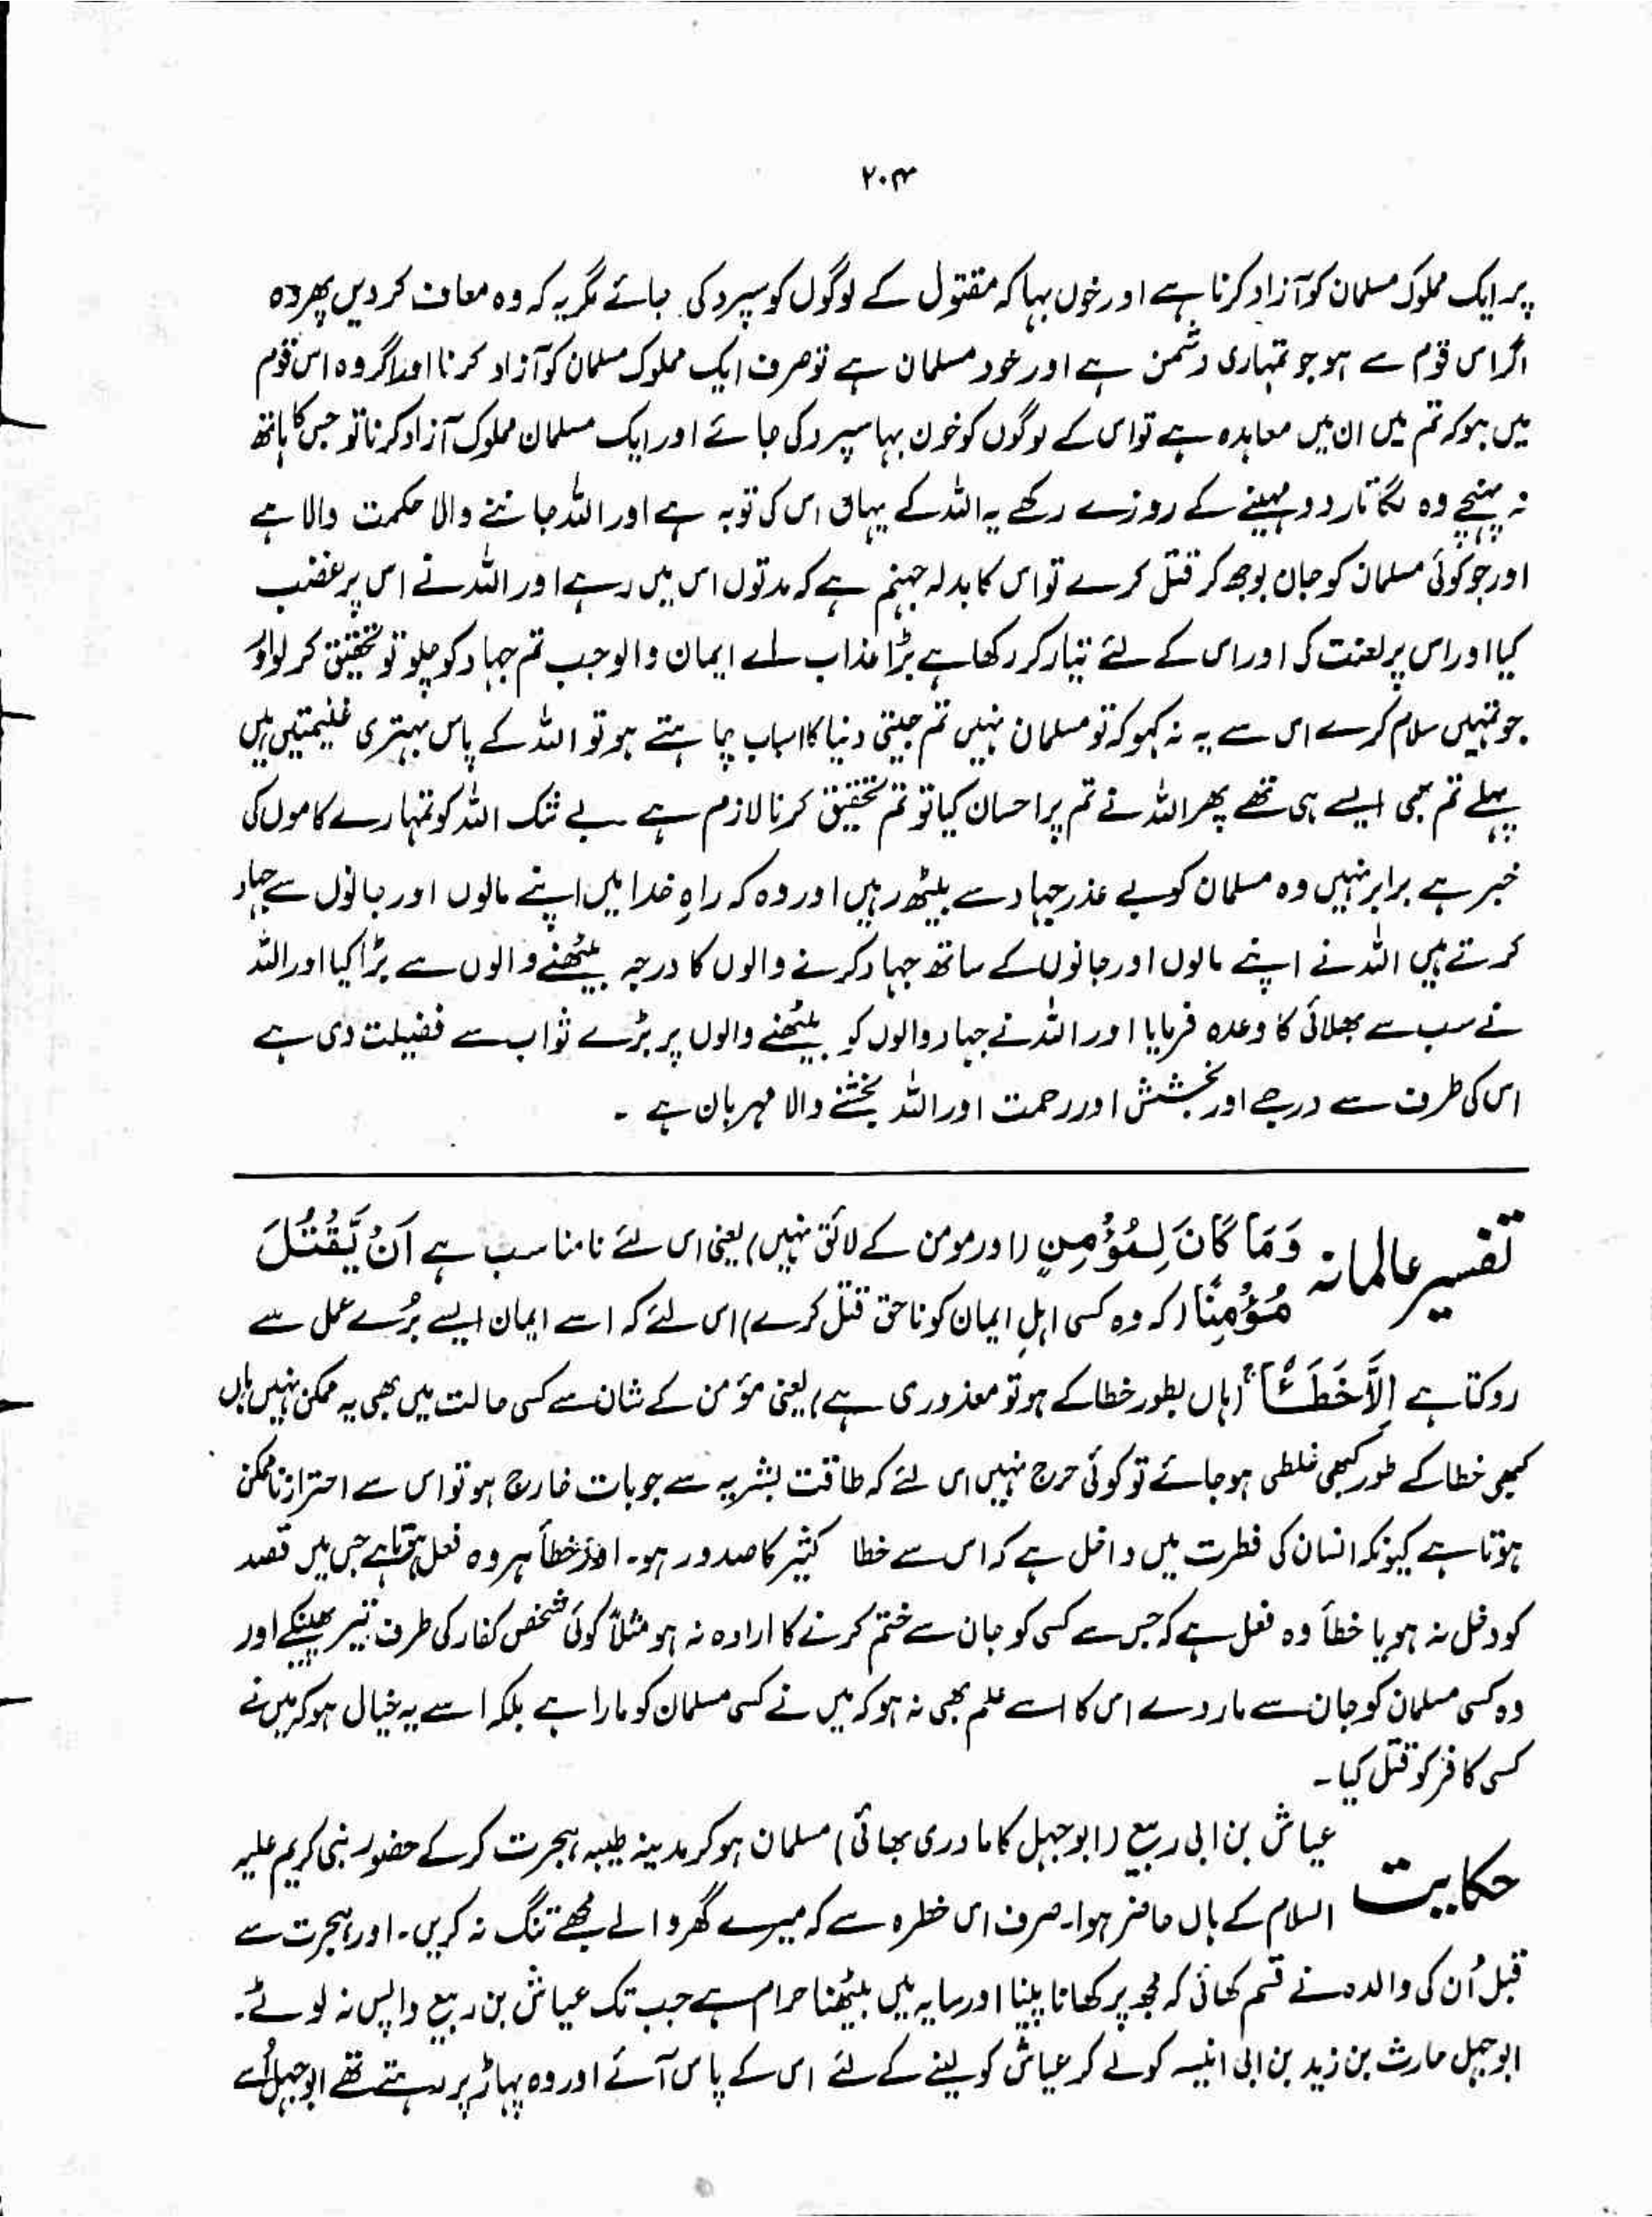 ۲۰۴
پر ایک مملوک مسلمان کو آزاد کرنا ہے اور خوں بہا کہ مقتول کے لوگوں کو سپرد کی جائے مگر یہ کہ وہ معاف کر دیں پھر وہ
اگر اس قوم سے ہو جو تمہاری دشمن ہے اور خود مسلمان ہے تو صرف ایک مملوک مسلمان کو آزاد کرنا اور اگر وہ اس قوم
میں ہو کہ تم میں ان میں معاہدہ ہے تو اس کے لوگوں کو خون بہا سپرد کی جائے اور ایک مسلمان مملوک آزاد کرنا تو جس کا ہاتھ
نہ پہنچے وہ لگاتار دو مہینے کے روزے رکھے یہ اللہ کے یہاں اس کی توبہ ہے اور اللہ جاننے والا حکمت والا ہے
اور جو کوئی مسلمان کو جان بوجھ کر قتل کرے تو اس کا بدلہ جہنم ہے کہ مدتوں اس میں رہے اور اللہ نے اس پر غضب
کیا اور اس پر لعنت کی اور اس کے لئے تیار کر رکھا ہے بڑا عذاب اے ایمان والو جب تم جہاد کو چلو تو تحقیق کر لو اور
جو تمہیں سلام کرے اس سے یہ نہ کہو کہ تو مسلمان نہیں تم جیتی دنیا کا اسباب چاہتے ہو تو اللہ کے پاس بہتری غنیمتیں ہیں
پہلے تم بھی ایسے ہی تھے پھر اللہ نے تم پر احسان کیا تو تم تحقیق کرنا لازم ہے بے شک اللہ کو تمہارے کاموں کی
خبر ہے برابر نہیں وہ مسلمان کو بے عذر جہاد سے بیٹھ رہیں اور وہ کہ راہِ خدا میں اپنے مالوں اور جانوں سے جہاد
کرتے ہیں اللہ نے اپنے مالوں اور جانوں کے ساتھ جہاد کرنے والوں کا درجہ بیٹھنے والوں سے بڑا کیا اور اللہ
نے سب سے بھلائی کا وعدہ فرمایا اور اللہ نے جہاد والوں کو بیٹھنے والوں پر بڑے ثواب سے فضیلت دی ہے
اس کی طرف سے درجے اور بخشش اور رحمت اور اللہ بخشنے والا مہربان ہے ۔
تفسیر عالمانہ وَمَا كَانَ لِمُؤْمِنٍ (اور مومن کے لائق نہیں) یعنی اس لئے نامناسب ہے اَنْ يَّقْتُلَ
مُؤْمِنًا (کہ وہ کسی اہلِ ایمان کو ناحق قتل کرے) اس لئے کہ اسے ایمان ایسے بُرے عمل سے
روکتا ہے اِلَّا خَطَـًٔا ۚ (ہاں بطور خطا کے ہو تو معذوری ہے) یعنی مؤمن کے شان سے کسی حالت میں بھی یہ ممکن نہیں ہاں
کبھی خطا کے طور کبھی غلطی ہو جائے تو کوئی حرج نہیں اس لئے کہ طاقت بشریہ سے جو بات خارج ہو تو اس سے احتراز ناممکن
ہوتا ہے کیونکہ انسان کی فطرت میں داخل ہے کہ اس سے خطا کثیر کا صدور ہو۔ اور خطأ ہر وہ فعل ہوتا ہے جس میں قصد
کو دخل نہ ہو یا خطأ وہ فعل ہے کہ جس سے کسی کو جان سے ختم کرنے کا ارادہ نہ ہو مثلاً کوئی شخص کفار کی طرف تیر پھینکے اور
وہ کسی مسلمان کو جان سے مار دے اس کا اسے علم بھی نہ ہو کہ میں نے کسی مسلمان کو مارا ہے بلکہ اسے یہ خیال ہو کہ میں نے
کسی کافر کو قتل کیا ۔
حکایت عیاش بن ابی ربیع (ابوجہل کا مادری بھائی) مسلمان ہو کر مدینہ طیبہ ہجرت کر کے حضور نبی کریم علیہ
السلام کے ہاں حاضر ہوا۔ صرف اس خطرہ سے کہ میرے گھر والے مجھے تنگ نہ کریں۔ اور ہجرت سے
قبل اُن کی والدہ نے قسم کھائی کہ مجھ پر کھانا پینا اور سایہ میں بیٹھنا حرام ہے جب تک عیاش بن ربیع واپس نہ لوٹے۔
ابوجہل حارث بن زید بن ابی انیسہ کو لے کر عیاش کو لینے کے لئے اس کے پاس آئے اور وہ پہاڑ پر رہتے تھے ابوجہل اُسے